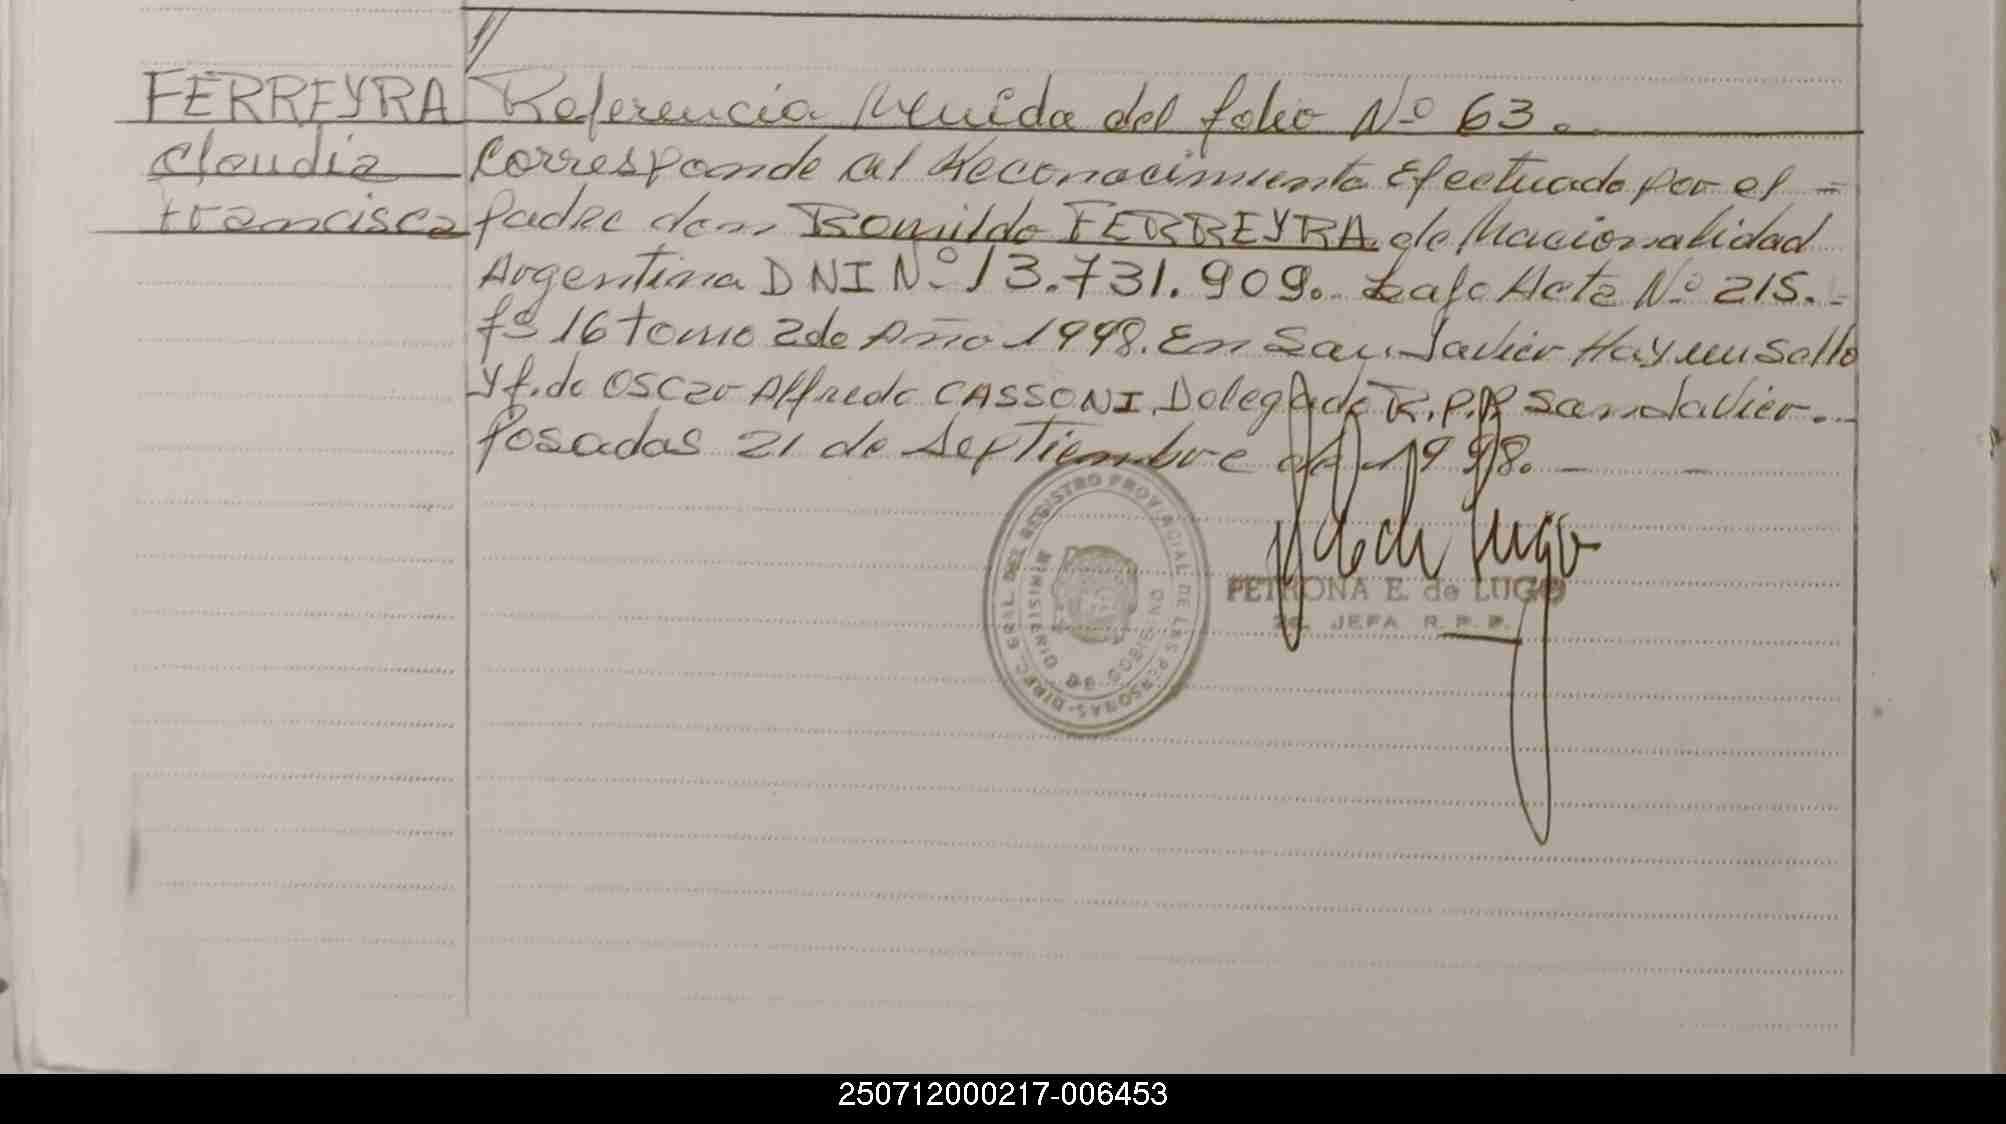 FERREYRA
Claudia
Francisca
Referencia Venida del folio Nº 63.
Corresponde al Reconocimiento Efectuado por el =
padre don Romildo FERREYRA de Nacionalidad
Argentina DNI Nº 13.731.909. bajo Acta Nº 215. =
fº 16 tomo 2do Año 1998. En San Javier Hay un Sello
y f. de Oscar Alfredo CASSONI Delegado R.P.P San Javier.
Posadas 21 de Septiembre de 1998. —
DIREC. GRAL. DEL REGISTRO PROVINCIAL DE LAS PERSONAS
MINISTERIO DE GOBIERNO
PETRONA E. de LUGO
JEFA R. P. P.
250712000217-006453